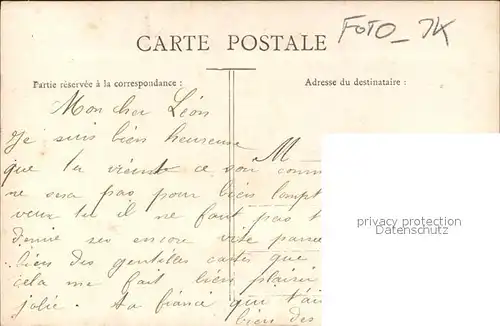 FOTO_JK
CARTE POSTALE
Partie réservée à la correspondance :
Adresse du destinataire :
Mon cher Léon
Je suis bien heureuse
M
que tu ce son
ne sera pas pour bien
veux tu il ne faut pas t
encore vite
bien des gentilles cartes que
cela me fait bien plaisir
jolie. ta fiance qui t'ai
bien des
privacy protection
Datenschutz